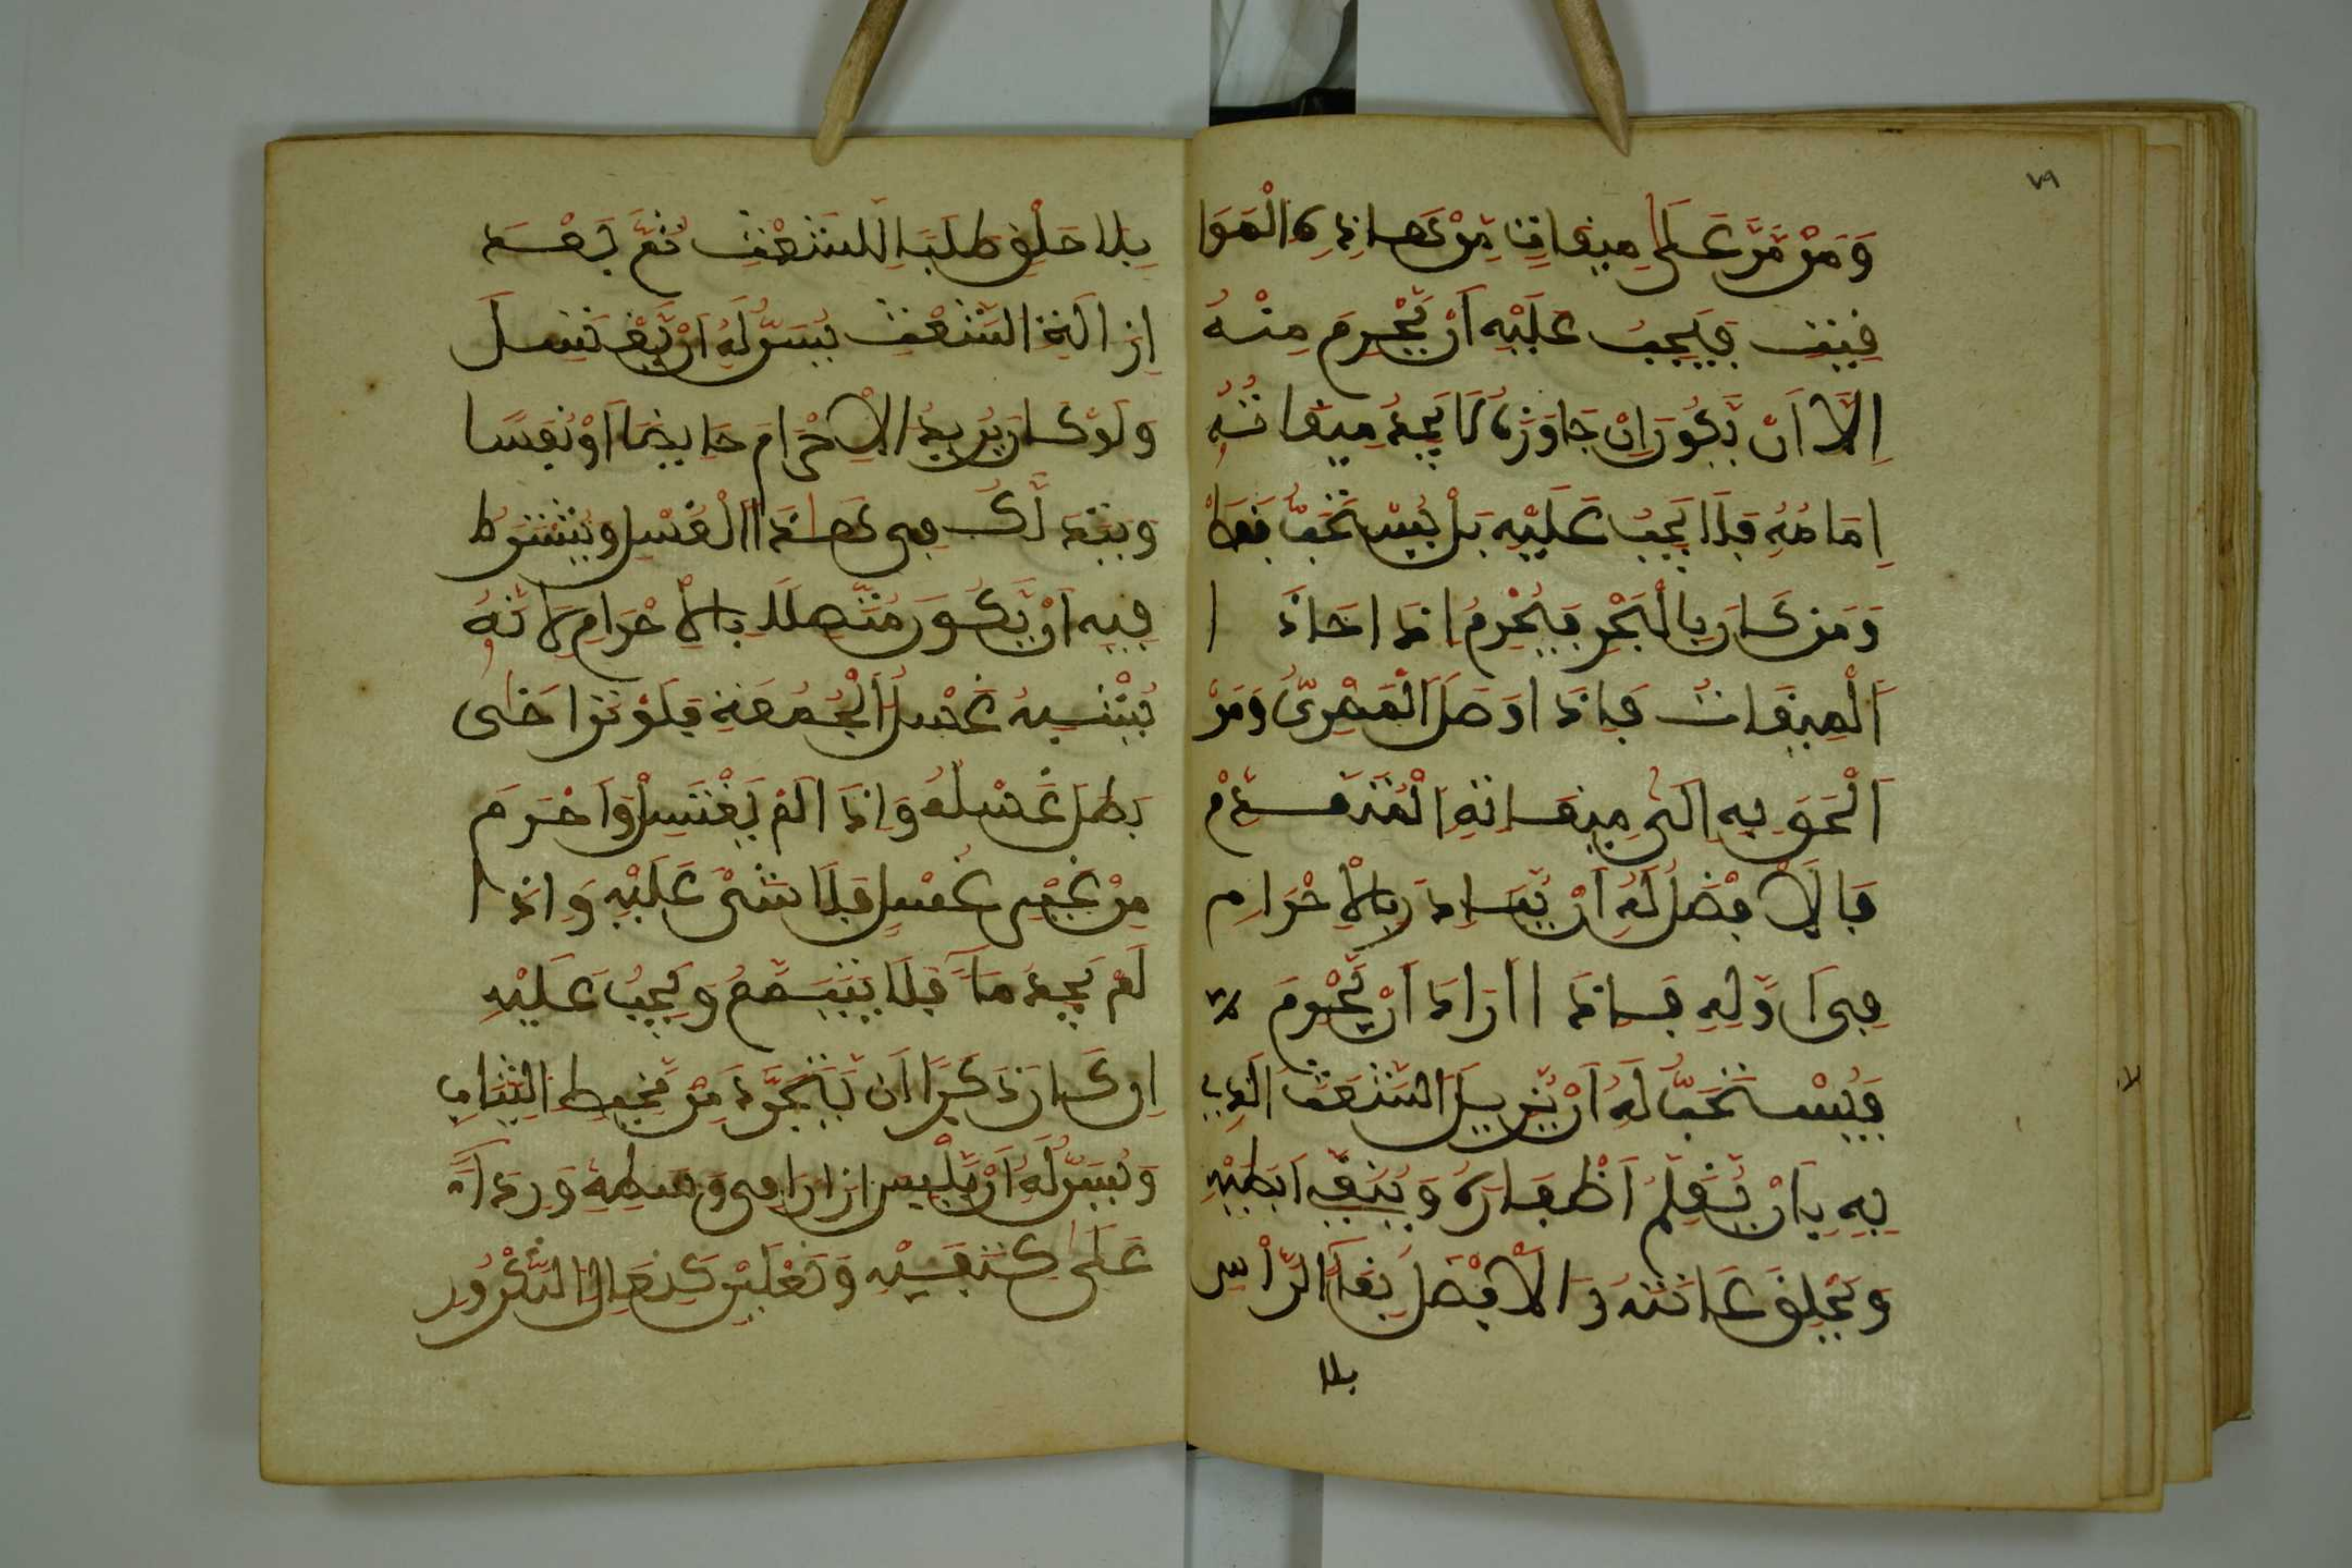 ٧٩
وَمَنْ مَّرَّ عَلَى مِيقَاتٍ مِّنْ هَذِهِ الْمَوَا
فِيتِ فَيَجِبُ عَلَيْهِ أَنْ يُّحْرِمَ مِنْهُ
إِلَّا أَن يَّكُونَ إِنْ جَاوَزَهُ لَا يَجِدُ مِيقَاتُهُ
إِمَامُهُ فَلَا يَجِبُ عَلَيْهِ بَلْ يُسْتَحَبُّ فَقَطْ
وَمَن كَانَ بِالْبَحْرِ فَيُحْرِمُ إِذَا حَاذَا
الْمِيقَاتَ فَإِذَا وَصَلَ الْمِصْرِيُّ وَمَنْ
أُلْحِقَ بِهِ إِلَى مِيقَاتِهِ الْمُتَقَدِّمْ
فَالْأَفْضَلُ لَهُ أَنْ يُّبَادِرَ بِالْإِحْرَامِ
فِي أَوَّلِهِ فَإِذَا أَرَادَ أَنْ يُّحْرِمَ
فَيُسْتَحَبُّ لَهُ أَنْ يُّزِيلَ الشَّعَثَ الَّذِي
بِهِ بِأَنْ يُّقَلِّمَ أَظْفَارَهُ وَيَنْتِفَ إِبْطَيْهِ
وَيَحْلِقَ عَانَتَهُ وَالْأَفْضَلُ بَقَاءُ الرَّأْسِ
بلا
بِلَا حَلْقٍ طَلَبًا لِلشَّعَثِ ثُمَّ بَعْدَ
إِزَالَةِ الشَّعَثِ يُسَنُّ لَهُ أَنْ يَّغْتَسِلَ
وَلَوْ كَانَ يُرِيدُ الْإِحْرَامَ حَائِضًا أَوْ نُفَسَا
وَيَتَدَلَّكُ فِي هَذَا الْغُسْلِ وَيُشْتَرَطُ
فِيهِ أَنْ يَّكُونَ مُتَّصِلًا بِالْإِحْرَامِ لِأَنَّهُ
يُشْبِهُ غُسْلَ الْجُمُعَةِ فَلَوْ تَرَاخَى
بَطَلَ غُسْلُهُ وَإِذَا لَمْ يَغْتَسِلْ وَأَحْرَمَ
مِنْ غَيْرِ غُسْلٍ فَلَا شَيْءَ عَلَيْهِ وَإِذَا
لَمْ يَجِدْ مَاءً فَلَا يَتَيَمَّمُ وَيَجِبُ عَلَيْهِ
إِن كَانَ ذَكَرًا أَن يَّتَجَرَّدَ مِنْ مَّخِيطِ الثِّيَابِ
وَيُسَنُّ لَهُ أَنْ يَّلْبِسَ إِزَارًا فِي وَسَطِهِ وَرِدَاءً
عَلَى كَتِفَيْهِ وَنَعْلَيْنِ كَنِعَالِ التَّكْرُورِ